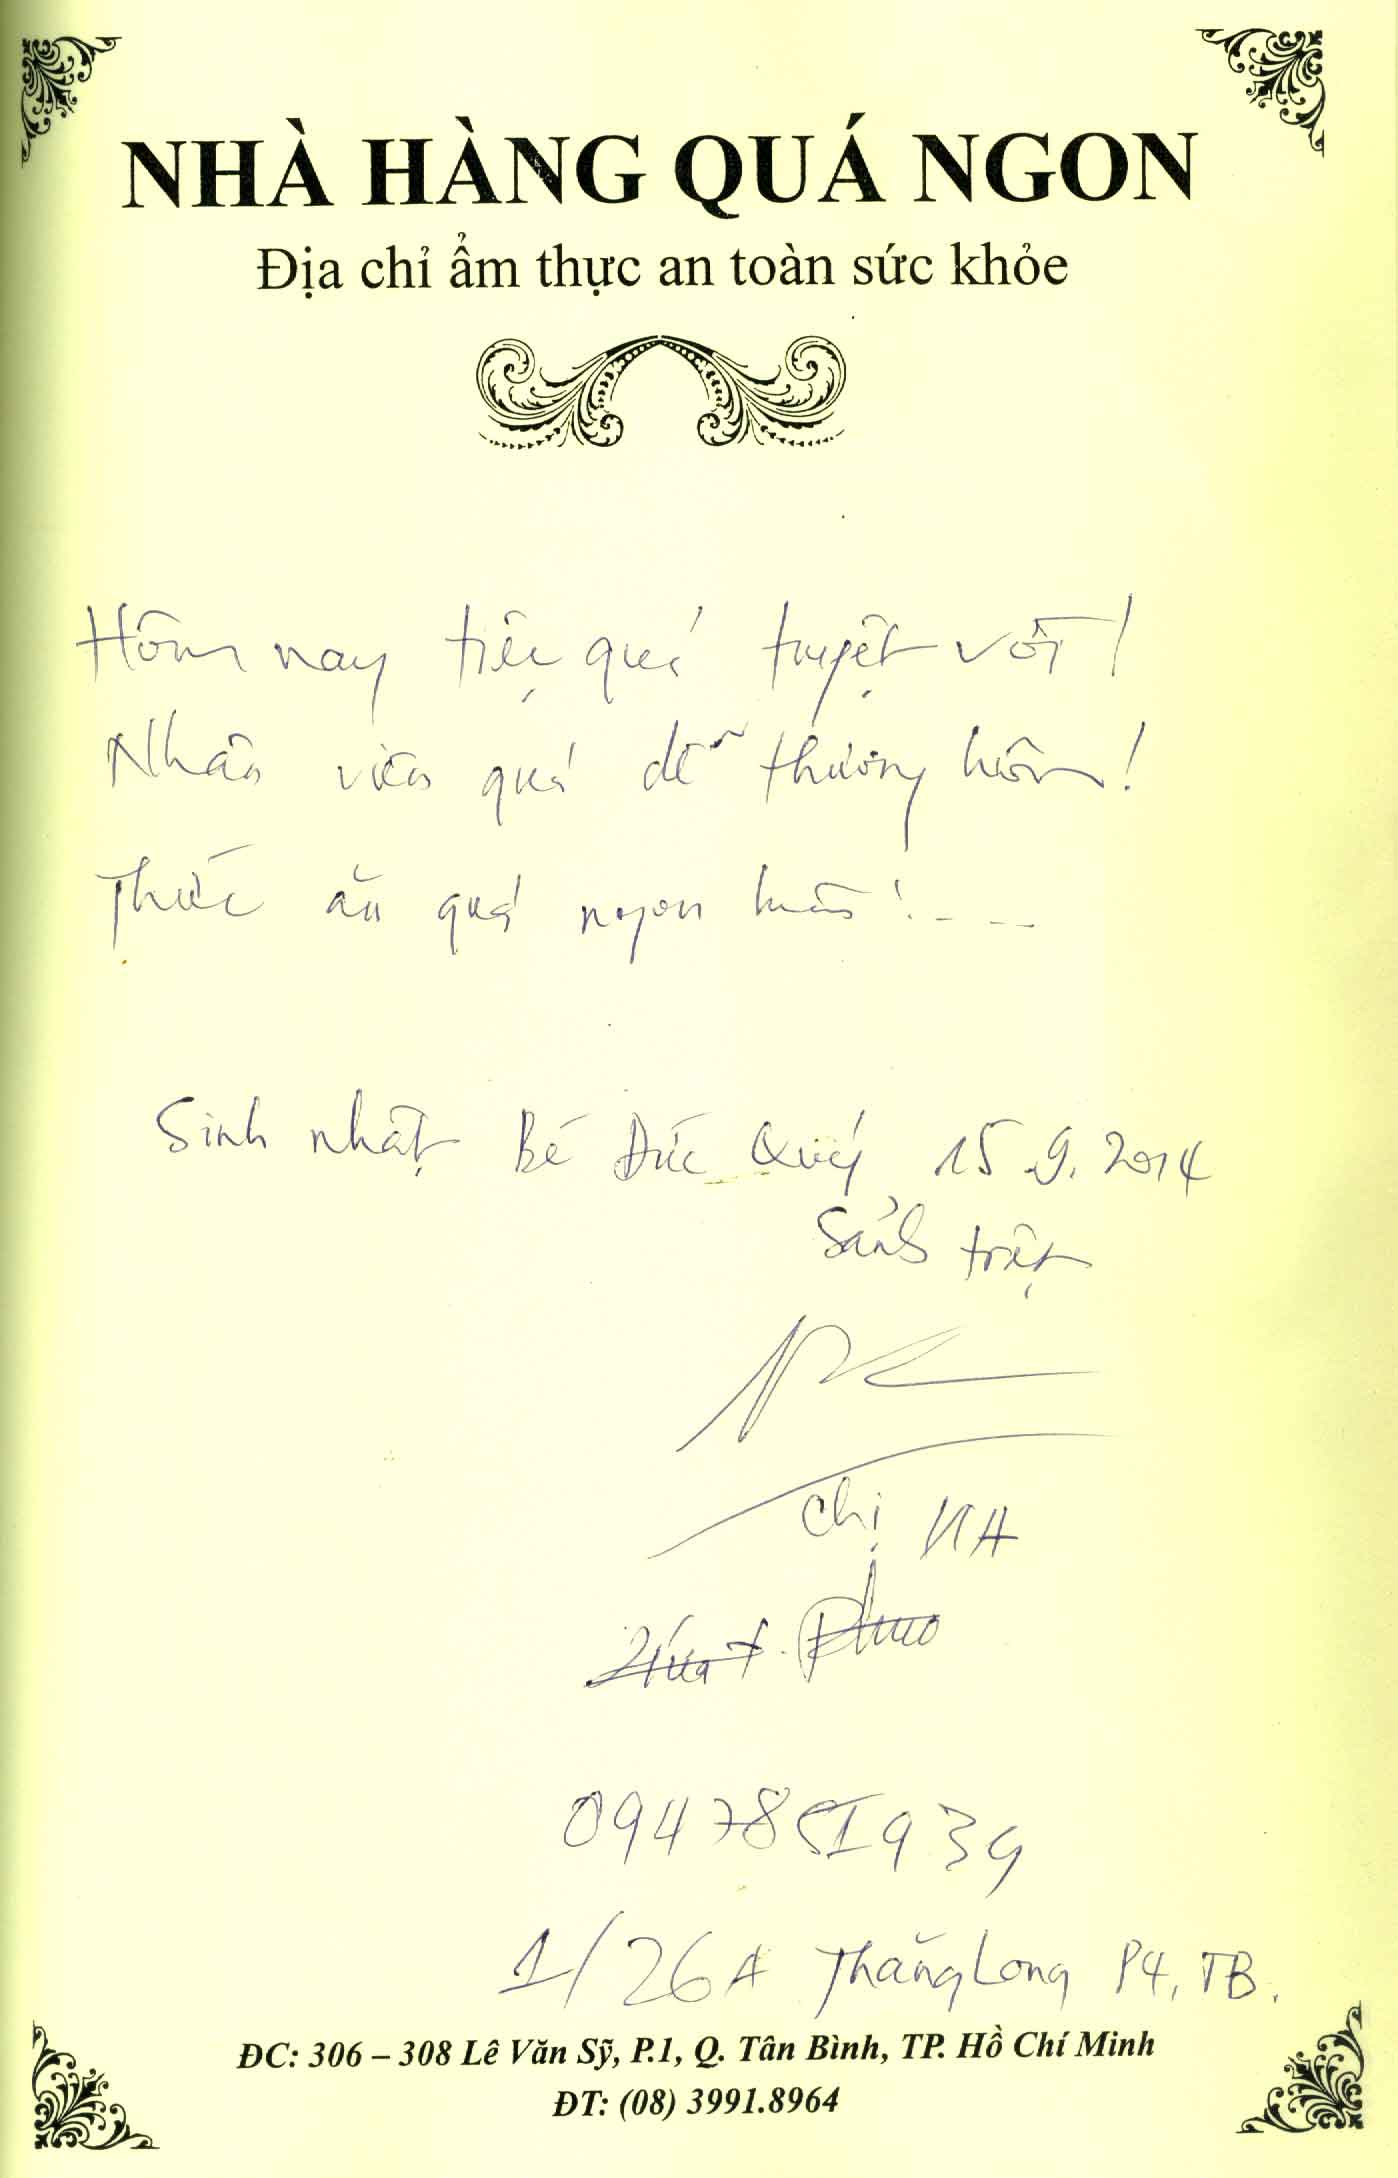 NHÀ HÀNG QUÁ NGON
Địa chỉ ẩm thực an toàn sức khỏe
Hôm nay tiệc quá tuyệt vời!
Nhân viên quá dễ thương luôn!
Thức ăn quá ngon luôn!...
Sinh nhật Bé Đức Quý 15.9.2014
Sảnh trệt
Chị
0947851939
1/26A Thăng Long P4, TB.
ĐC: 306 – 308 Lê Văn Sỹ, P.1, Q. Tân Bình, TP. Hồ Chí Minh
ĐT: (08) 3991.8964